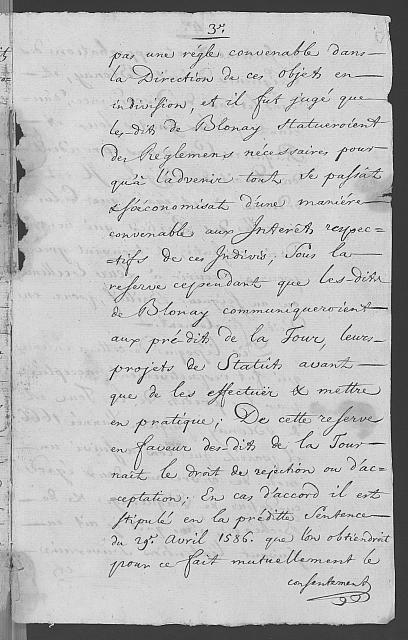 3.e
pas une règle convenable dans
la Direction de ces objets en
indivision, et il fut jugé que
les-dits de Blonay statueroient
des Réglemens nécessaires pour
qu'à l'advenir tout se passât
& s'oéconomisat d'une maniére
convenable aux Interêts respec-
=tifs de ces Indivis; Sous la
reserve cependant que les-dits
de Blonay communiqueroient
aux prédits de la Tour, leurs
projets de Statuts avant
que de les effectuër & mettre
en pratique; De cette reserve
en faveur des-dits de la Tour
nait le droit de rejection ou d'ac-
=ceptation; En cas d'accord il est
stipulé en la préditte Sentence
du 29e. Avril 1586. que l'on obtiendroit
pour ce fait mutuellement le
consentement